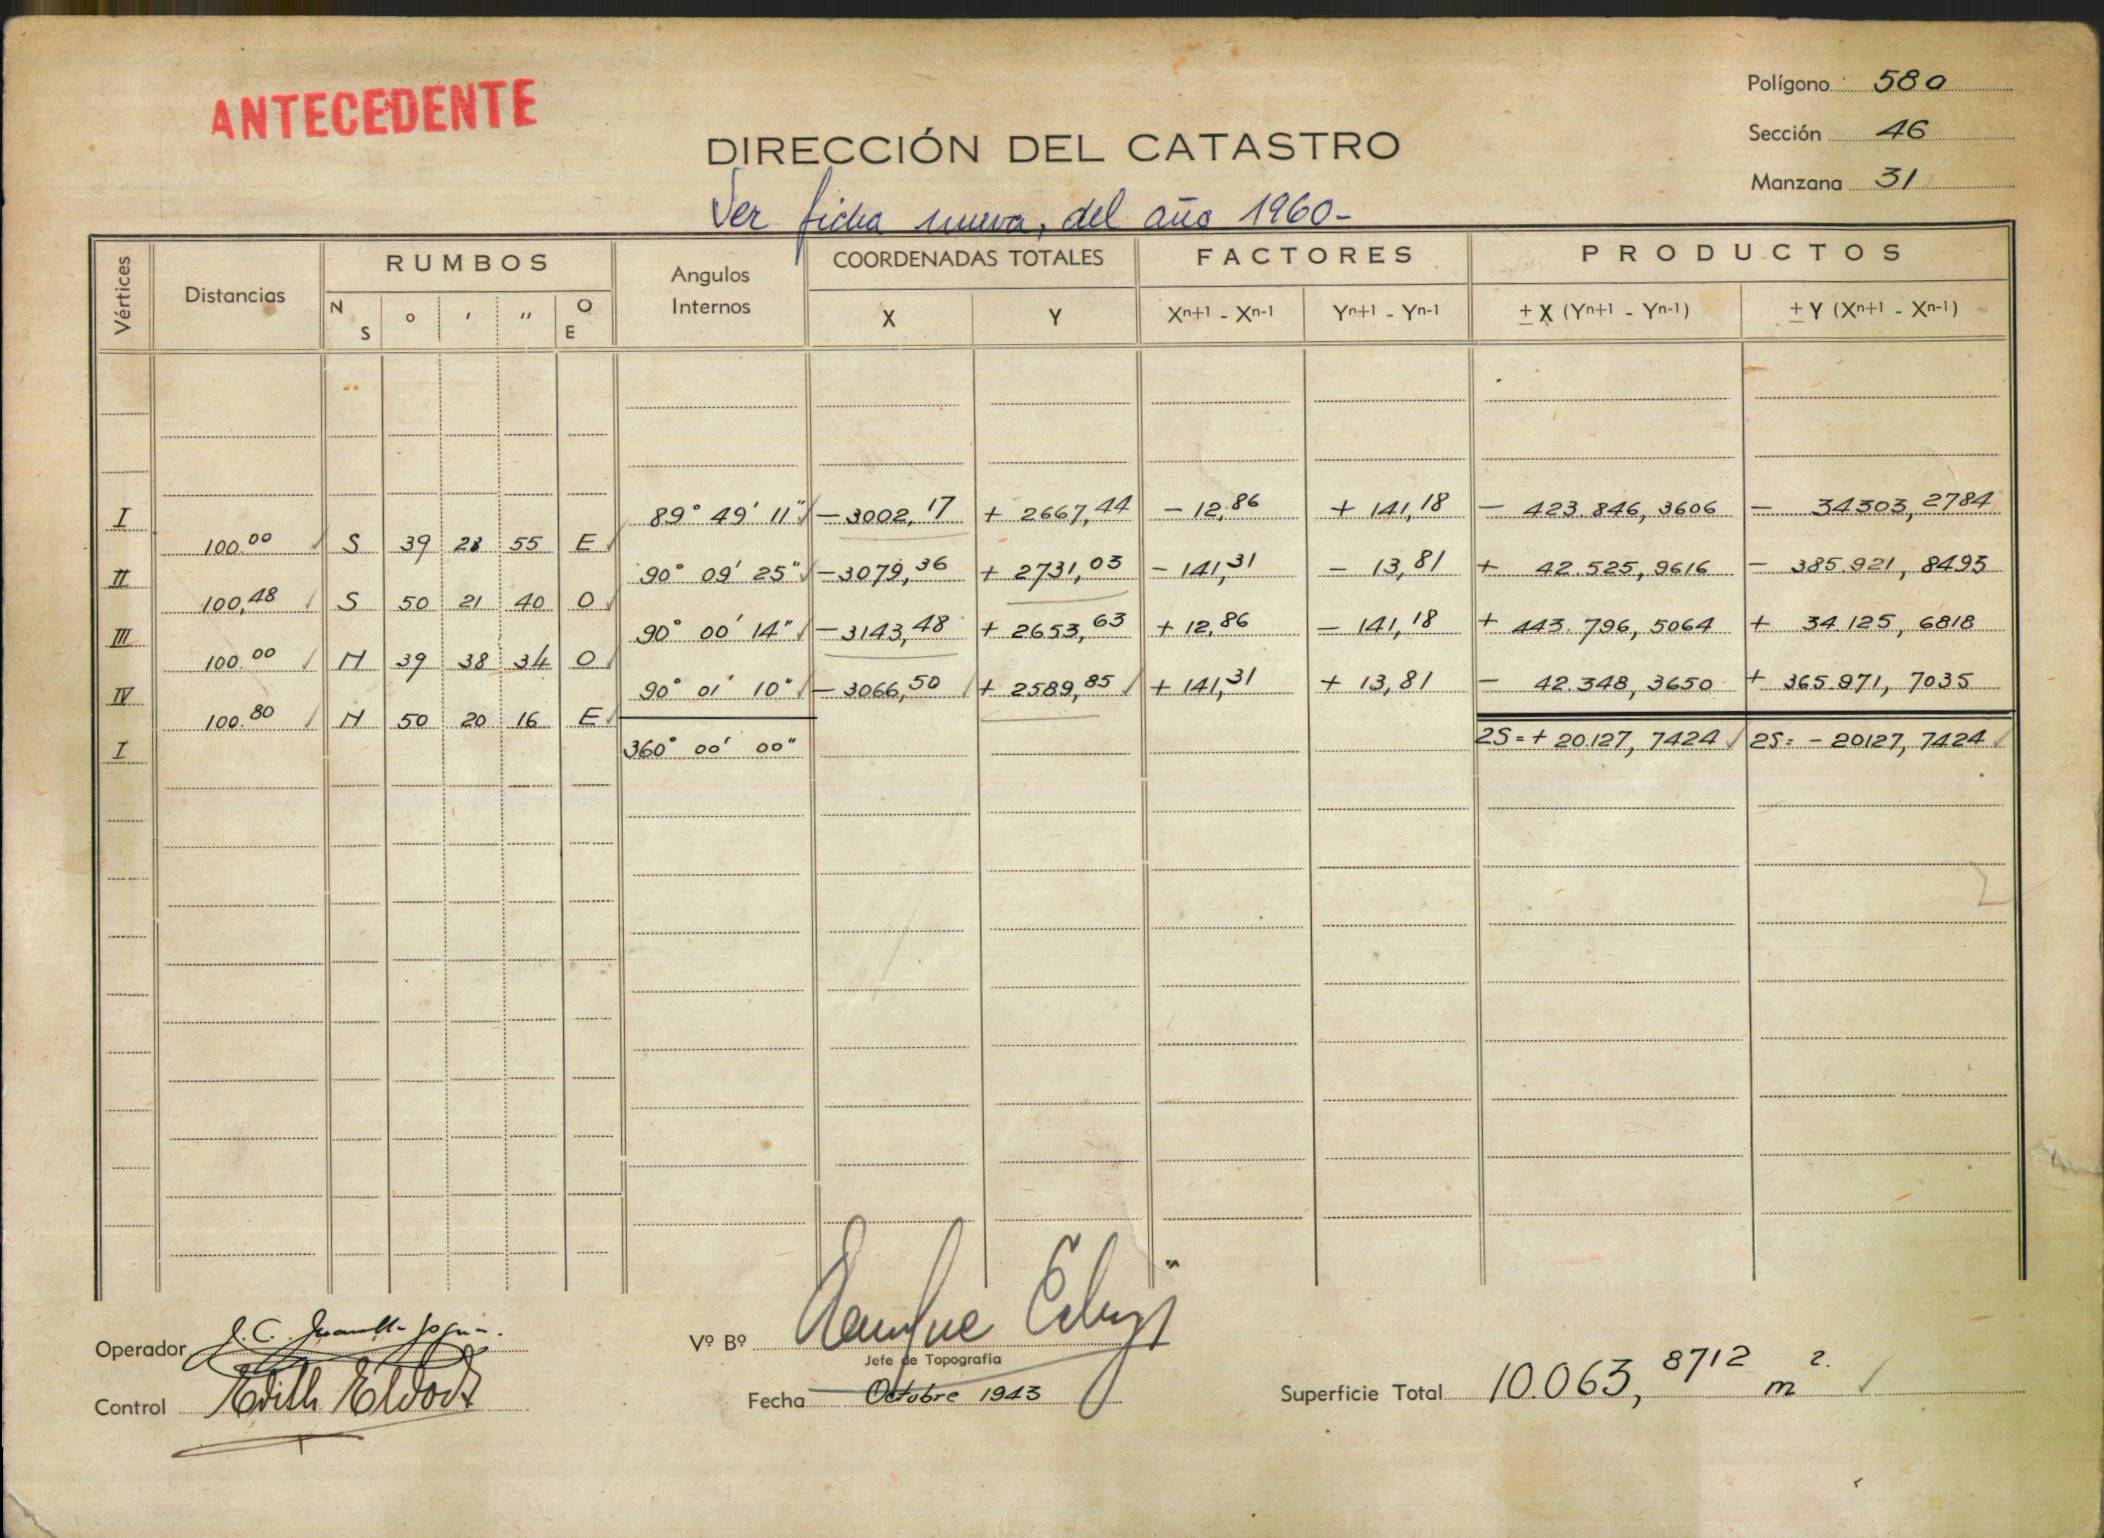 ANTECEDENTE
Polígono 580
Sección 46
Manzana 31
DIRECCIÓN DEL CATASTRO
Ver ficha nueva, del año 1960-
Vértices Distancias RUMBOS Angulos Internos COORDENADAS TOTALES FACTORES PRODUCTOS
N S ° ' " O E X Y Xn+1 - Xn-1 Yn+1 - Yn-1 ± X (Yn+1 - Yn-1) ± Y (Xn+1 - Xn-1)
I 89° 49' 11" - 3002,17 + 2667,44 - 12,86 + 141,18 - 423.846,3606 - 34303,2784
100.00 S 39 28 55 E
II 90° 09' 25" - 3079,36 + 2731,03 - 141,31 - 13,81 + 42.525,9616 - 385.921,8493
100,48 S 50 21 40 O
III 90° 00' 14" - 3143,48 + 2653,63 + 12,86 - 141,18 + 443.796,5064 + 34.125,6818
100.00 N 39 38 34 O
IV 90° 01' 10" - 3066,50 + 2589,85 + 141,31 + 13,81 - 42.348,3650 + 365.971,7035
100.80 N 50 20 16 E
I 360° 00' 00" 2S = + 20.127,7424 2S = - 20127,7424
Operador J. C.
Control Edith
Vº Bº
Jefe de Topografía
Fecha Octubre 1943
Superficie Total 10.063,8712 m2.